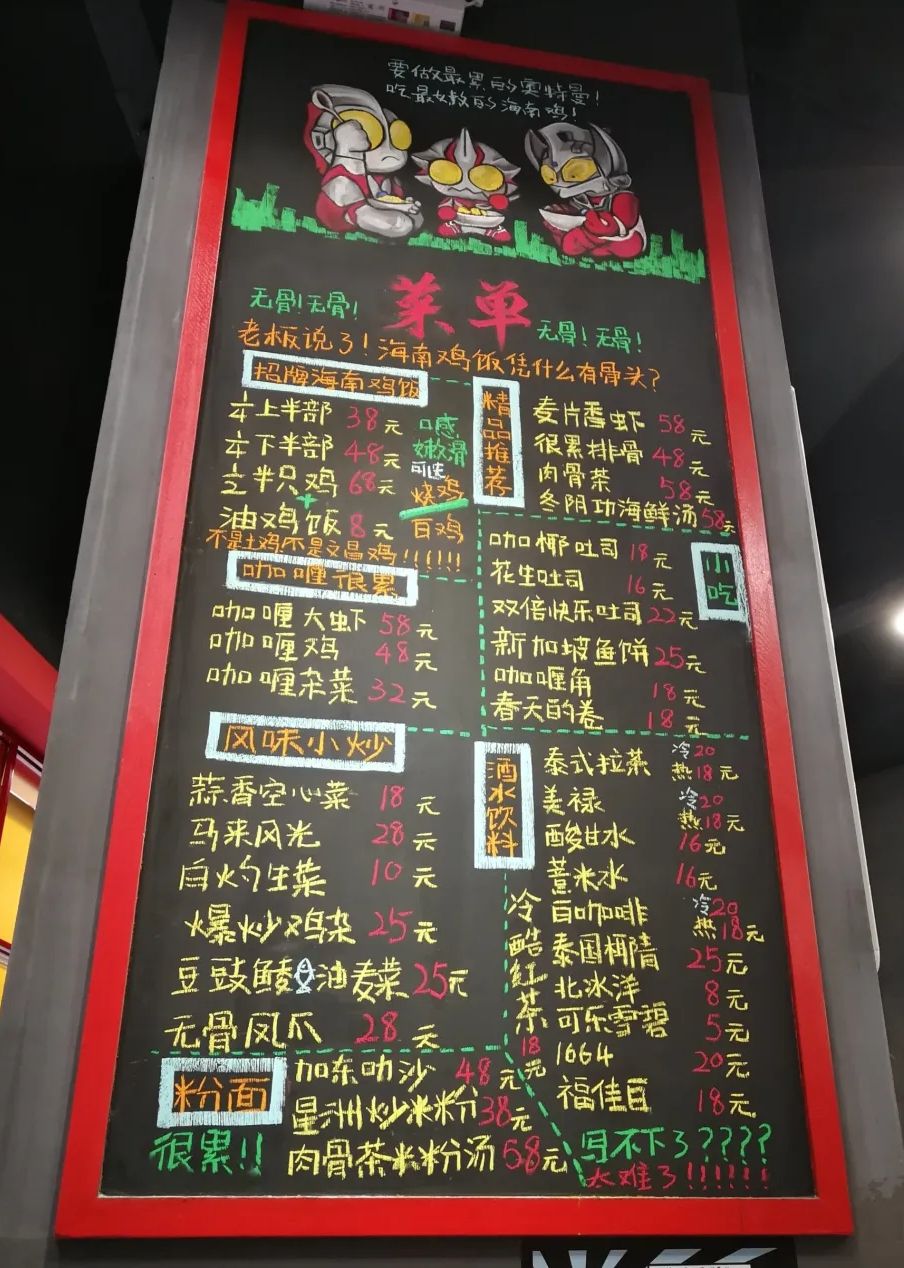 要做最累的奥特曼!
吃最嫩的海南鸡!
菜单
无骨!无骨!
无骨!无骨!
老板说了!海南鸡饭凭什么有骨头?
招牌海南鸡饭
上半部 38元
下半部 48元
半只鸡 68元
油鸡饭 8元
口感
嫩滑
可选
烧鸡
白鸡
不是土鸡不是文昌鸡!!!!!!
咖喱很累
咖喱大虾 58元
咖喱鸡 48元
咖喱杂菜 32元
风味小炒
蒜香空心菜 18元
马来风光 28元
白灼生菜 10元
爆炒鸡杂 25元
豆豉鲮油麦菜 25元
无骨凤爪 28元
粉面
很累!!
加东叻沙 48元
星洲炒米粉 38元
肉骨茶米粉汤 58元
精品推荐
麦片香虾 58元
很累排骨 48元
肉骨茶 58元
冬阴功海鲜汤 58元
小吃
咖椰吐司 18元
花生吐司 16元
双倍快乐吐司 22元
新加坡鱼饼 25元
咖喱角 18元
春天的卷 18元
酒水饮料
泰式拉茶 冷20
热18元
美禄 冷20
热18元
酸甘水 16元
薏米水 16元
白咖啡 冷20
热18元
泰国椰青 25元
北冰洋 8元
可乐雪碧 5元
1664 20元
福佳白 18元
冷酷红茶 18元
写不下了????
太难了!!!!!!